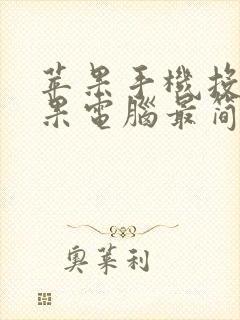 苹果手機格
果電腦最简
奥莱利